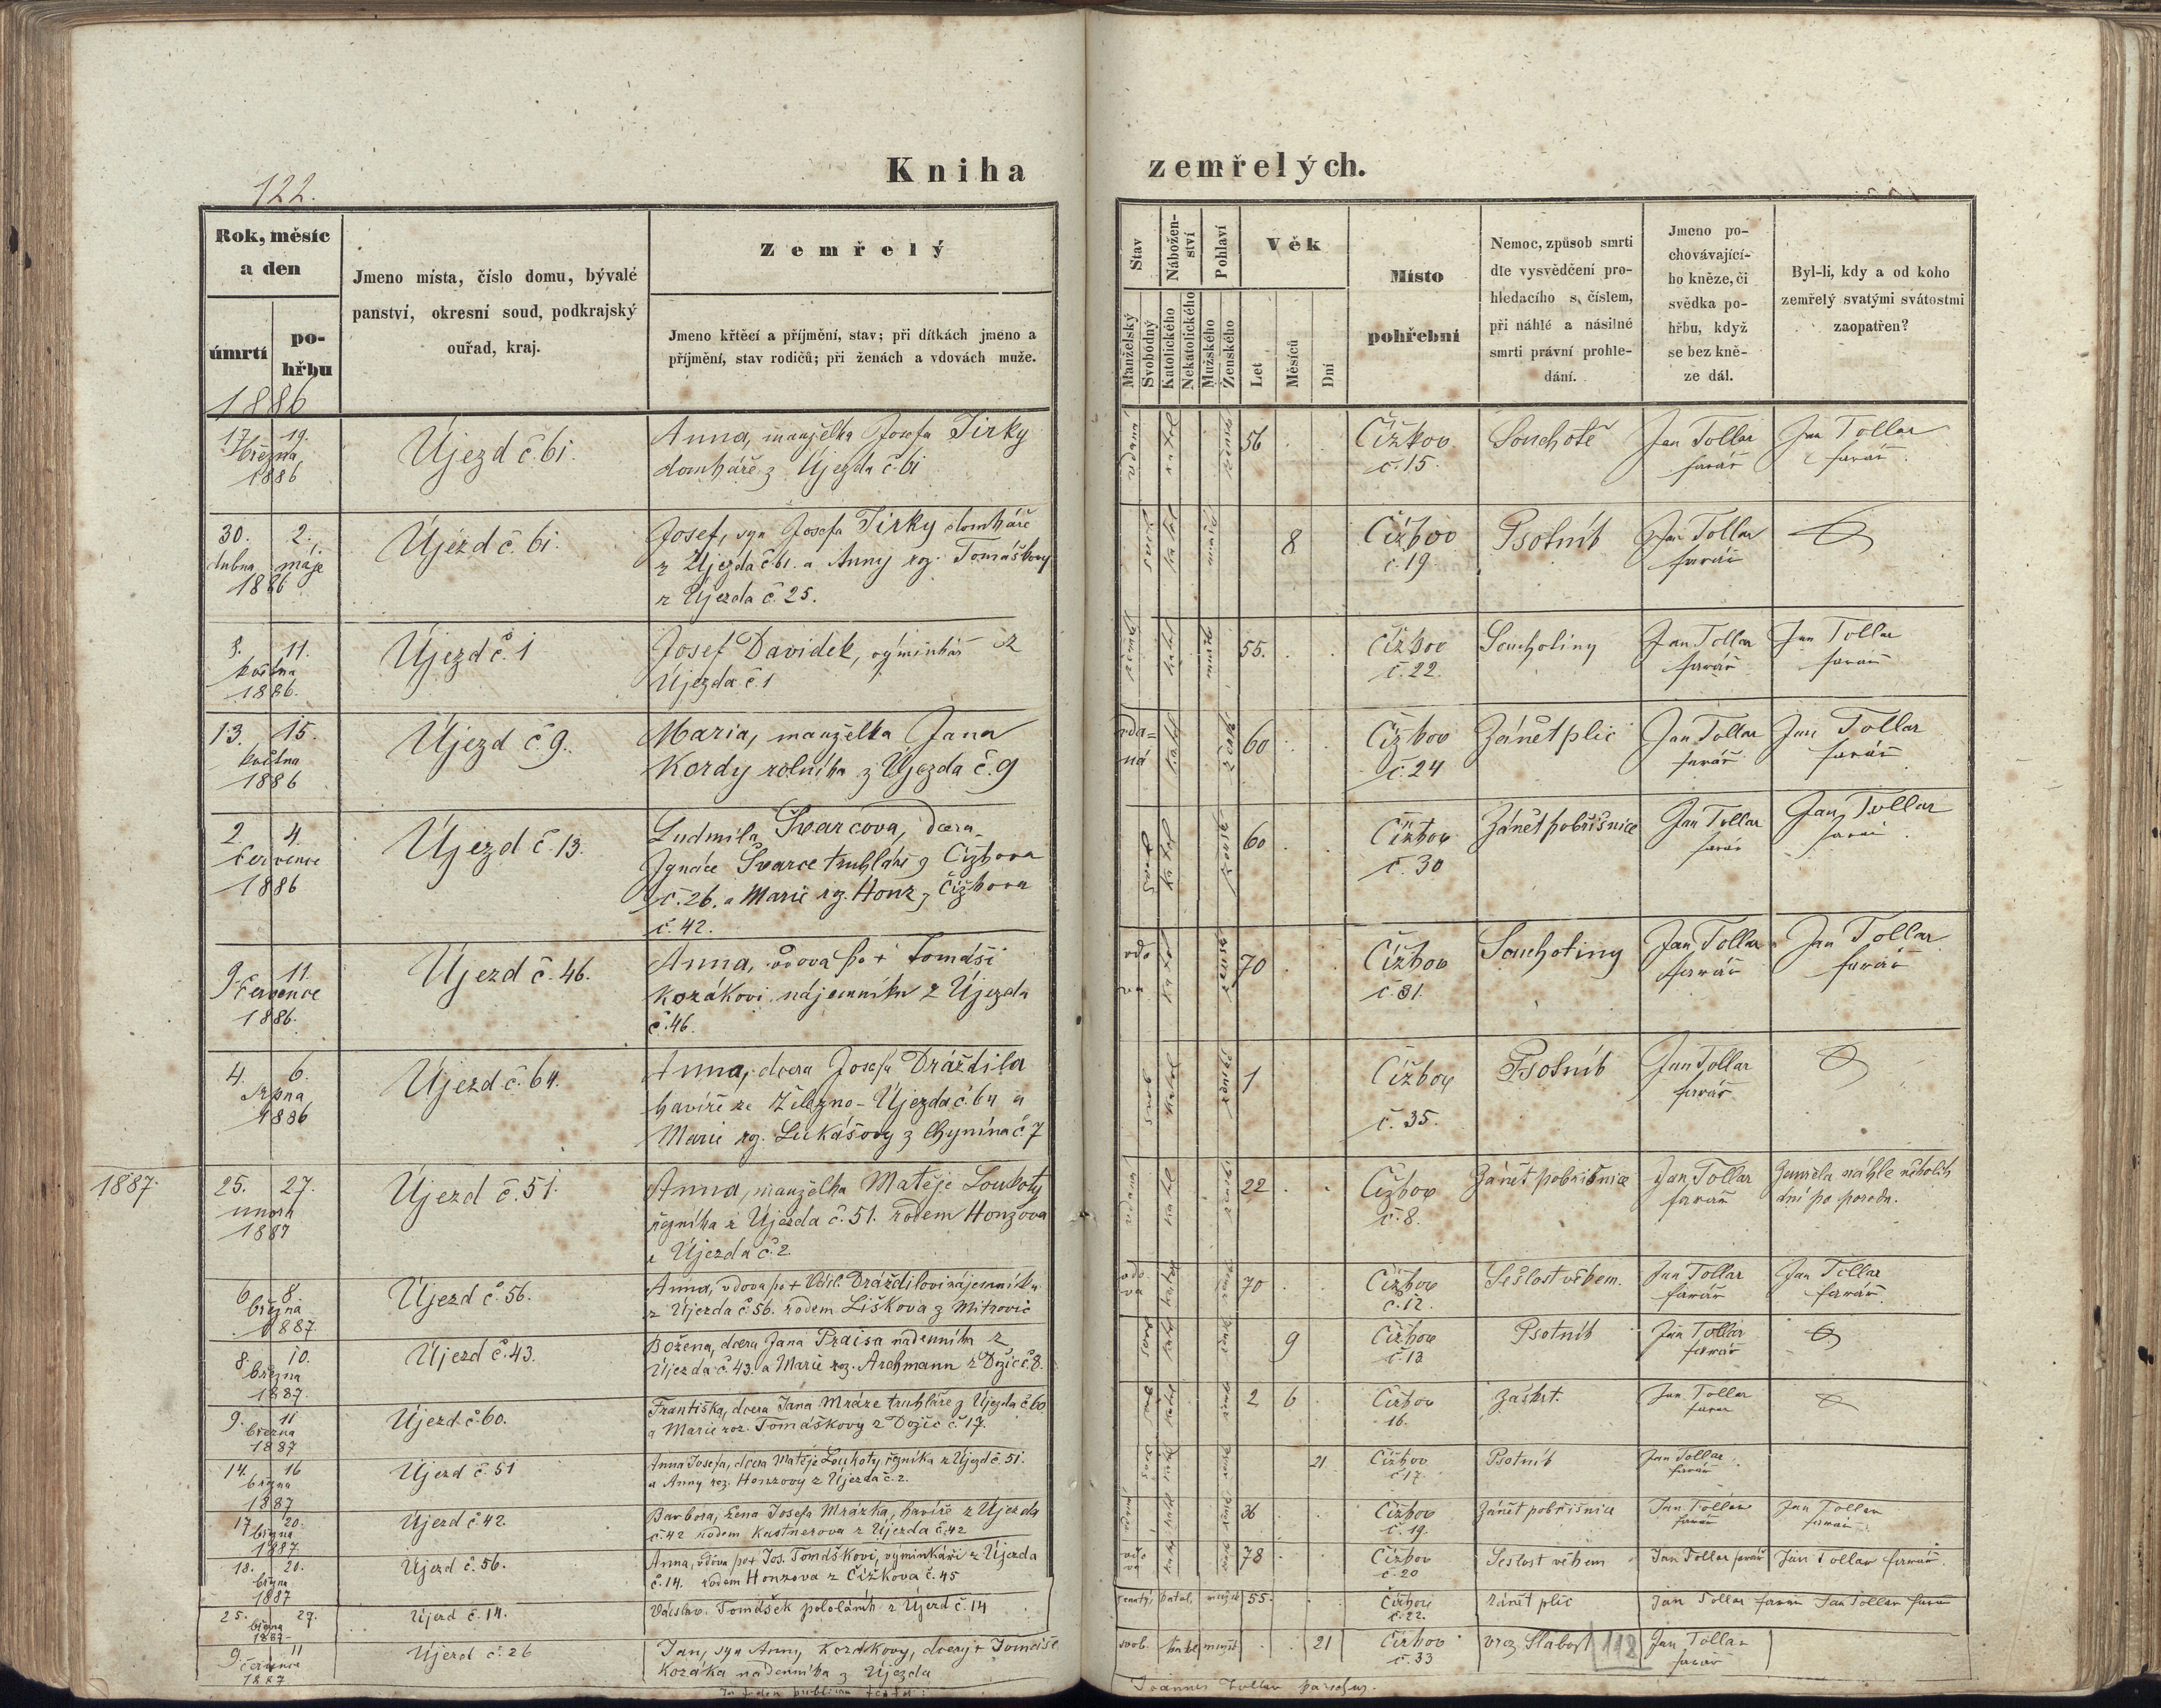 Kniha zemřelých.
122.
Rok, měsíc a den
úmrtí
pohřbu
Jmeno místa, číslo domu, bývalé panství, okresní soud, podkrajský ouřad, kraj.
Zemřelý
Jmeno křtěcí a příjmění, stav; při dítkách jmeno a příjmění, stav rodičů; při ženách a vdovách muže.
Stav
Manželský
Svobodný
Náboženství
Katolického
Nekatolického
Pohlaví
Mužského
Ženského
Věk
Let
Měsíců
Dní
Místo pohřební
Nemoc, způsob smrti dle vysvědčení prohledacího s číslem, při náhlé a násilné smrti právní prohledání.
Jmeno pochovávajícího kněze, či svědka pohřbu, když se bez kněze dál.
Byl-li, kdy a od koho zemřelý svatými svátostmi zaopatřen?
1886
17. 19. března 1886 Újezd č. 61. Anna, manželka Josefa Jirky
domkáře z Újezda č. 61 vdaná katol žensk 56 Čížkov č. 15. Souchotě Jan Tollar farář Jan Tollar farář
30. dubna 2. máje 1886 Újezd č. 61. Josef, syn Josefa Jirky domkáře
z Újezda č. 61. a Anny roz. Tomáškovy
z Újezda č. 25. svob katol mužsk 8 Čížkov č. 19 Psotník Jan Tollar farář
11. května 1886. Újezd č. 1 Josef Davidek, výminkář z
Újezda č. 1 ženatý katol mužsk 55. Čížkov č. 22. Souchotiny Jan Tollar farář Jan Tollar farář
13. 15. května 1886 Újezd č. 9. Maria, manželka Jana
Kordy rolníka z Újezda č. 9 vdaná katol žensk 60 Čížkov č. 24 Zánět plic Jan Tollar farář Jan Tollar farář
2. 4. července 1886 Újezd č. 13. Ludmila Švarcova, dcera
Ignáce Švarce truhláře z Čížkova
č. 26. a Marie roz. Honz z Čížkova
č. 42. svob katol žensk 60 Čížkov č. 30 Zánět pobřišnice Jan Tollar farář Jan Tollar farář
9. 11. července 1886. Újezd č. 46. Anna, vdova po + Tomáši
Kozákovi nájemníku z Újezda
č. 46. vdova katol žensk 70 Čížkov č. 31. Souchotiny Jan Tollar farář Jan Tollar farář
4. 6. srpna 1886 Újezd č. 64. Anna, dcera Josefa Dráždila
havíře ze Železno-Újezda č. 64 a
Marie roz. Lukášovy z Chynína č. 7 svob katol žensk 1 Čížkov č. 35. Psotník Jan Tollar farář
1887.
25. 27. února 1887 Újezd č. 51. Anna, manželka Matěje Loukoty
řezníka z Újezda č. 51. rodem Honzova
z Újezda č. 2. vdaná katol žensk 22 Čížkov č. 8. Zánět pobřišnice Jan Tollar farář Zemřela náhle několik
dní po porodu.
6. 8. března 1887 Újezd č. 56. Anna, vdova po + Dráždilovi nájemníku
z Újezda č. 56. rodem Liškova z Mitrovic vdova katol žensk 70 Čížkov č. 12. Sešlost věkem. Jan Tollar farář Jan Tollar farář
8. 10. března 1887. Újezd č. 43. Božena, dcera Jana Praisa nadenníka z
Újezda č. 43. a Marie roz. Archmann z Dožic č. 8. svob katol žensk 9 Čížkov č. 13 Psotník Jan Tollar farář
9. 11 března 1887 Újezd č. 60. Františka, dcera Jana Mráze truhláře z Újezda č. 60
a Marie roz. Tomáškovy z Dožic č. 17. svob katol žensk 2 6 Čížkov 16. záškrt. Jan Tollar farář
14. 16 března 1887 Újezd č. 51 Anna Josefa, dcera Matěje Loukoty řezníka z Újezd č. 51.
a Anny roz. Honzovy z Újezda č. 2. svob katol žensk 21 Čížkov č. 17. Psotník Jan Tollar farář
17. 20. března 1887. Újezd č. 42. Barbora, žena Josefa Mrázka, havíře z Újezda
č. 42 rodem Kastnerova z Újezda č. 42 vdaná katol žensk 36 Čížkov č. 19. Zánět pobřišnice Jan Tollar farář Jan Tollar farář
18. 20. března 1887 Újezd č. 56. Anna, vdova po + Jos. Tomáškovi, výminkáři z Újezda
č. 14. rodem Honzova z Čížkova č. 45 vdova katol žensk 78 Čížkov č. 20 Sešlost věkem Jan Tollar farář Jan Tollar farář.
25. 27. března 1887 Újezd č. 14. Václav Tomášek pololáník z Újezd č. 14 ženatý, katol. mužsk 55. Čížkov č. 22. zánět plic Jan Tollar farář Jan Tollar farář
9. 11 července 1887 Újezd č. 26 Jan, syn Anny Kozákovy, dcery + Tomáše
Kozáka nadenníka z Újezda svob. katol mužsk 21 Čížkov č. 33 vroz. Slabost 112 Jan Tollar farář
Joannes Tollar parochus.